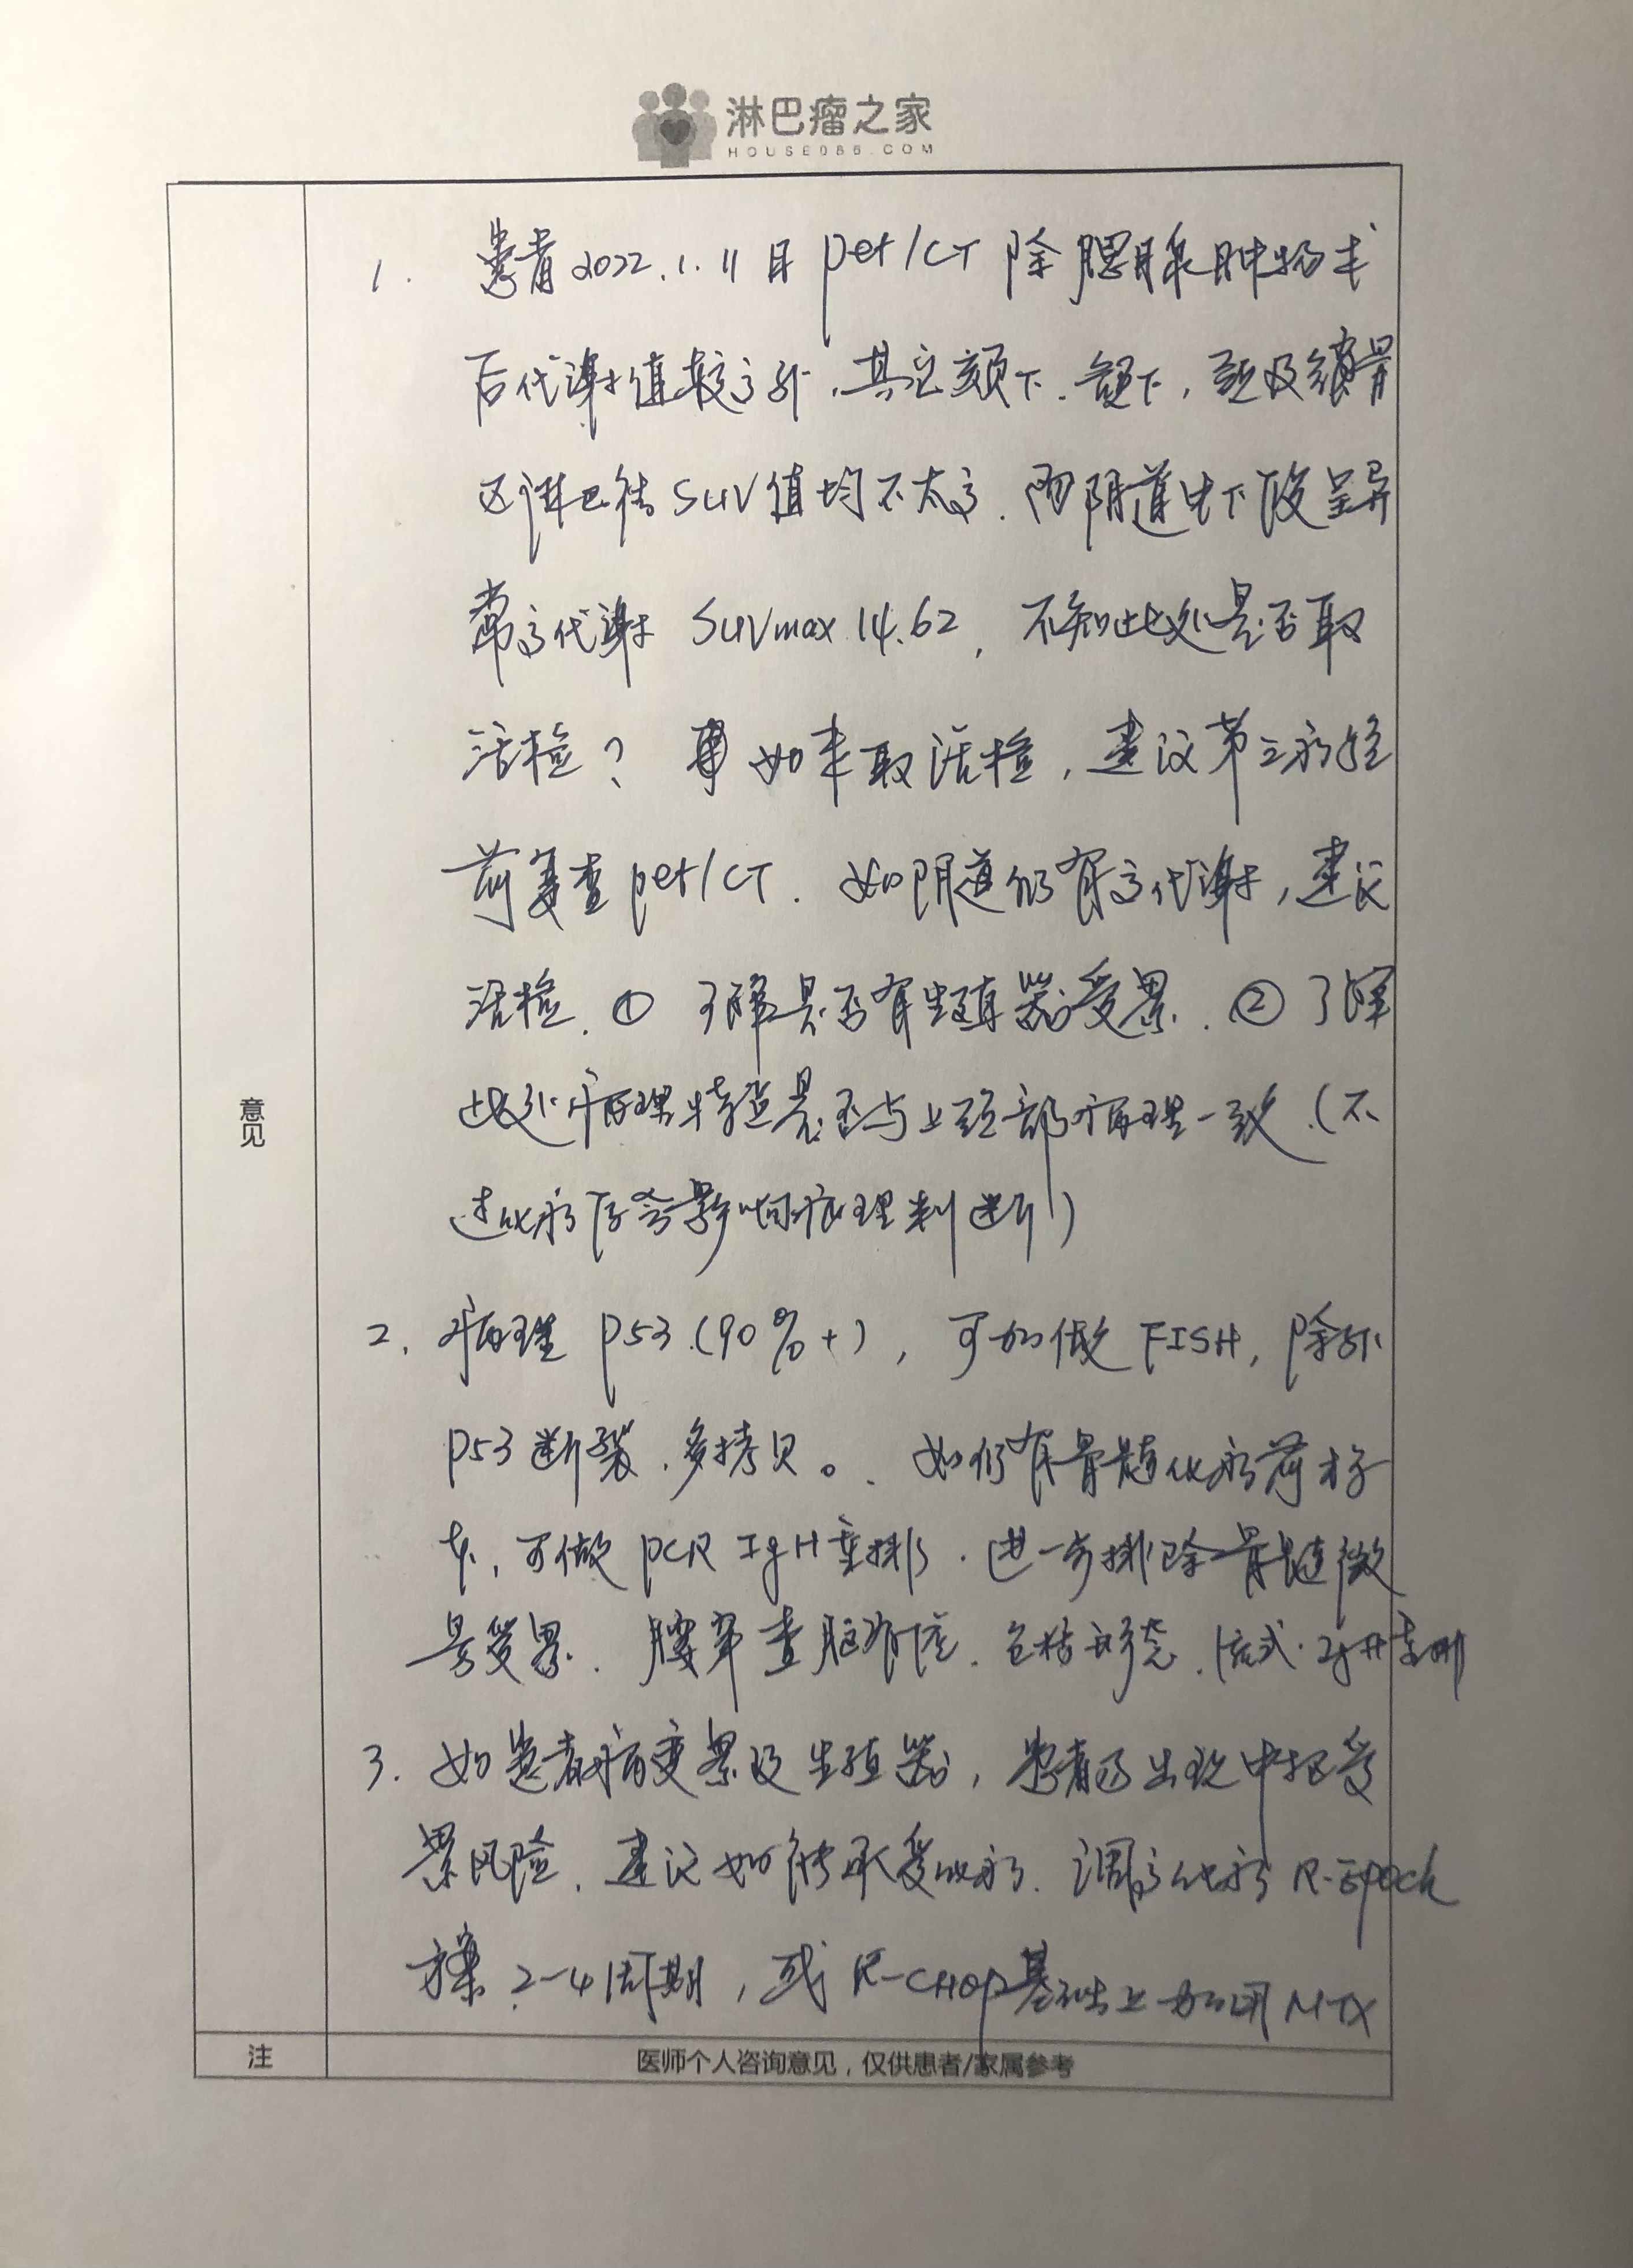 淋巴瘤之家
HOUSE086.COM
意见
1. 患者2022.1.11日 pet/CT 除腮腺肿物术
后代谢值较高外，其它颏下、颌下，颈及锁骨
区淋巴结SUV值均不太高．而阴道中下段呈异
常高代谢 SUVmax 14.62，不知此处是否取
活检？如未取活检，建议第三次化疗
前复查pet/CT．如阴道仍有高代谢，建议
活检．① 了解是否有生殖器受累．② 了解
此处病理特点是否与上颈部病理一致．(不
过化疗后会影响病理判断)
2. 病理 P53 (90%+)，可加做 FISH，除外
P53断裂、多拷贝。如仍有骨髓化疗前标
本，可做 PCR IgH重排．进一步排除骨髓微
量受累．腰穿查脑脊液．包括形态．流式．IgH重排
3. 如患者病变累及生殖器，患者易出现中枢受
累风险．建议如能承受化疗．调高化疗 R-EPOCH
方案 2-4周期，或 R-CHOP基础上加用 MTX
注
医师个人咨询意见，仅供患者/家属参考